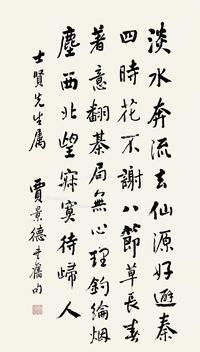 淡水奔流去仙源好避秦
四時花不謝八節草長春
著意翻棊局無心理釣綸烟
塵西北望寂寞待歸人
士賢先生属 賈景德書舊句